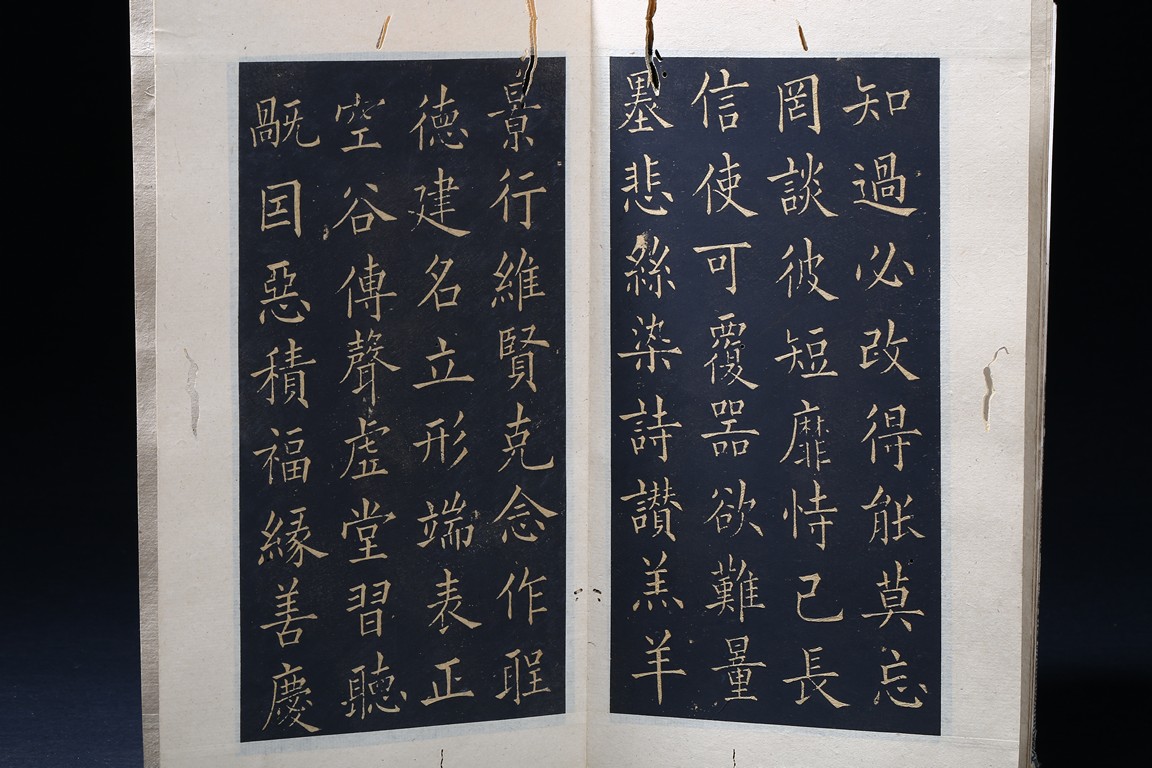 知過必改得能莫忘
罔談彼短靡恃己長
信使可覆噐欲難量
墨悲絲染詩讃羔羊
景行維賢克念作聖
徳建名立形端表正
空谷傳聲虚堂習聽
旤囙惡積福緣善慶